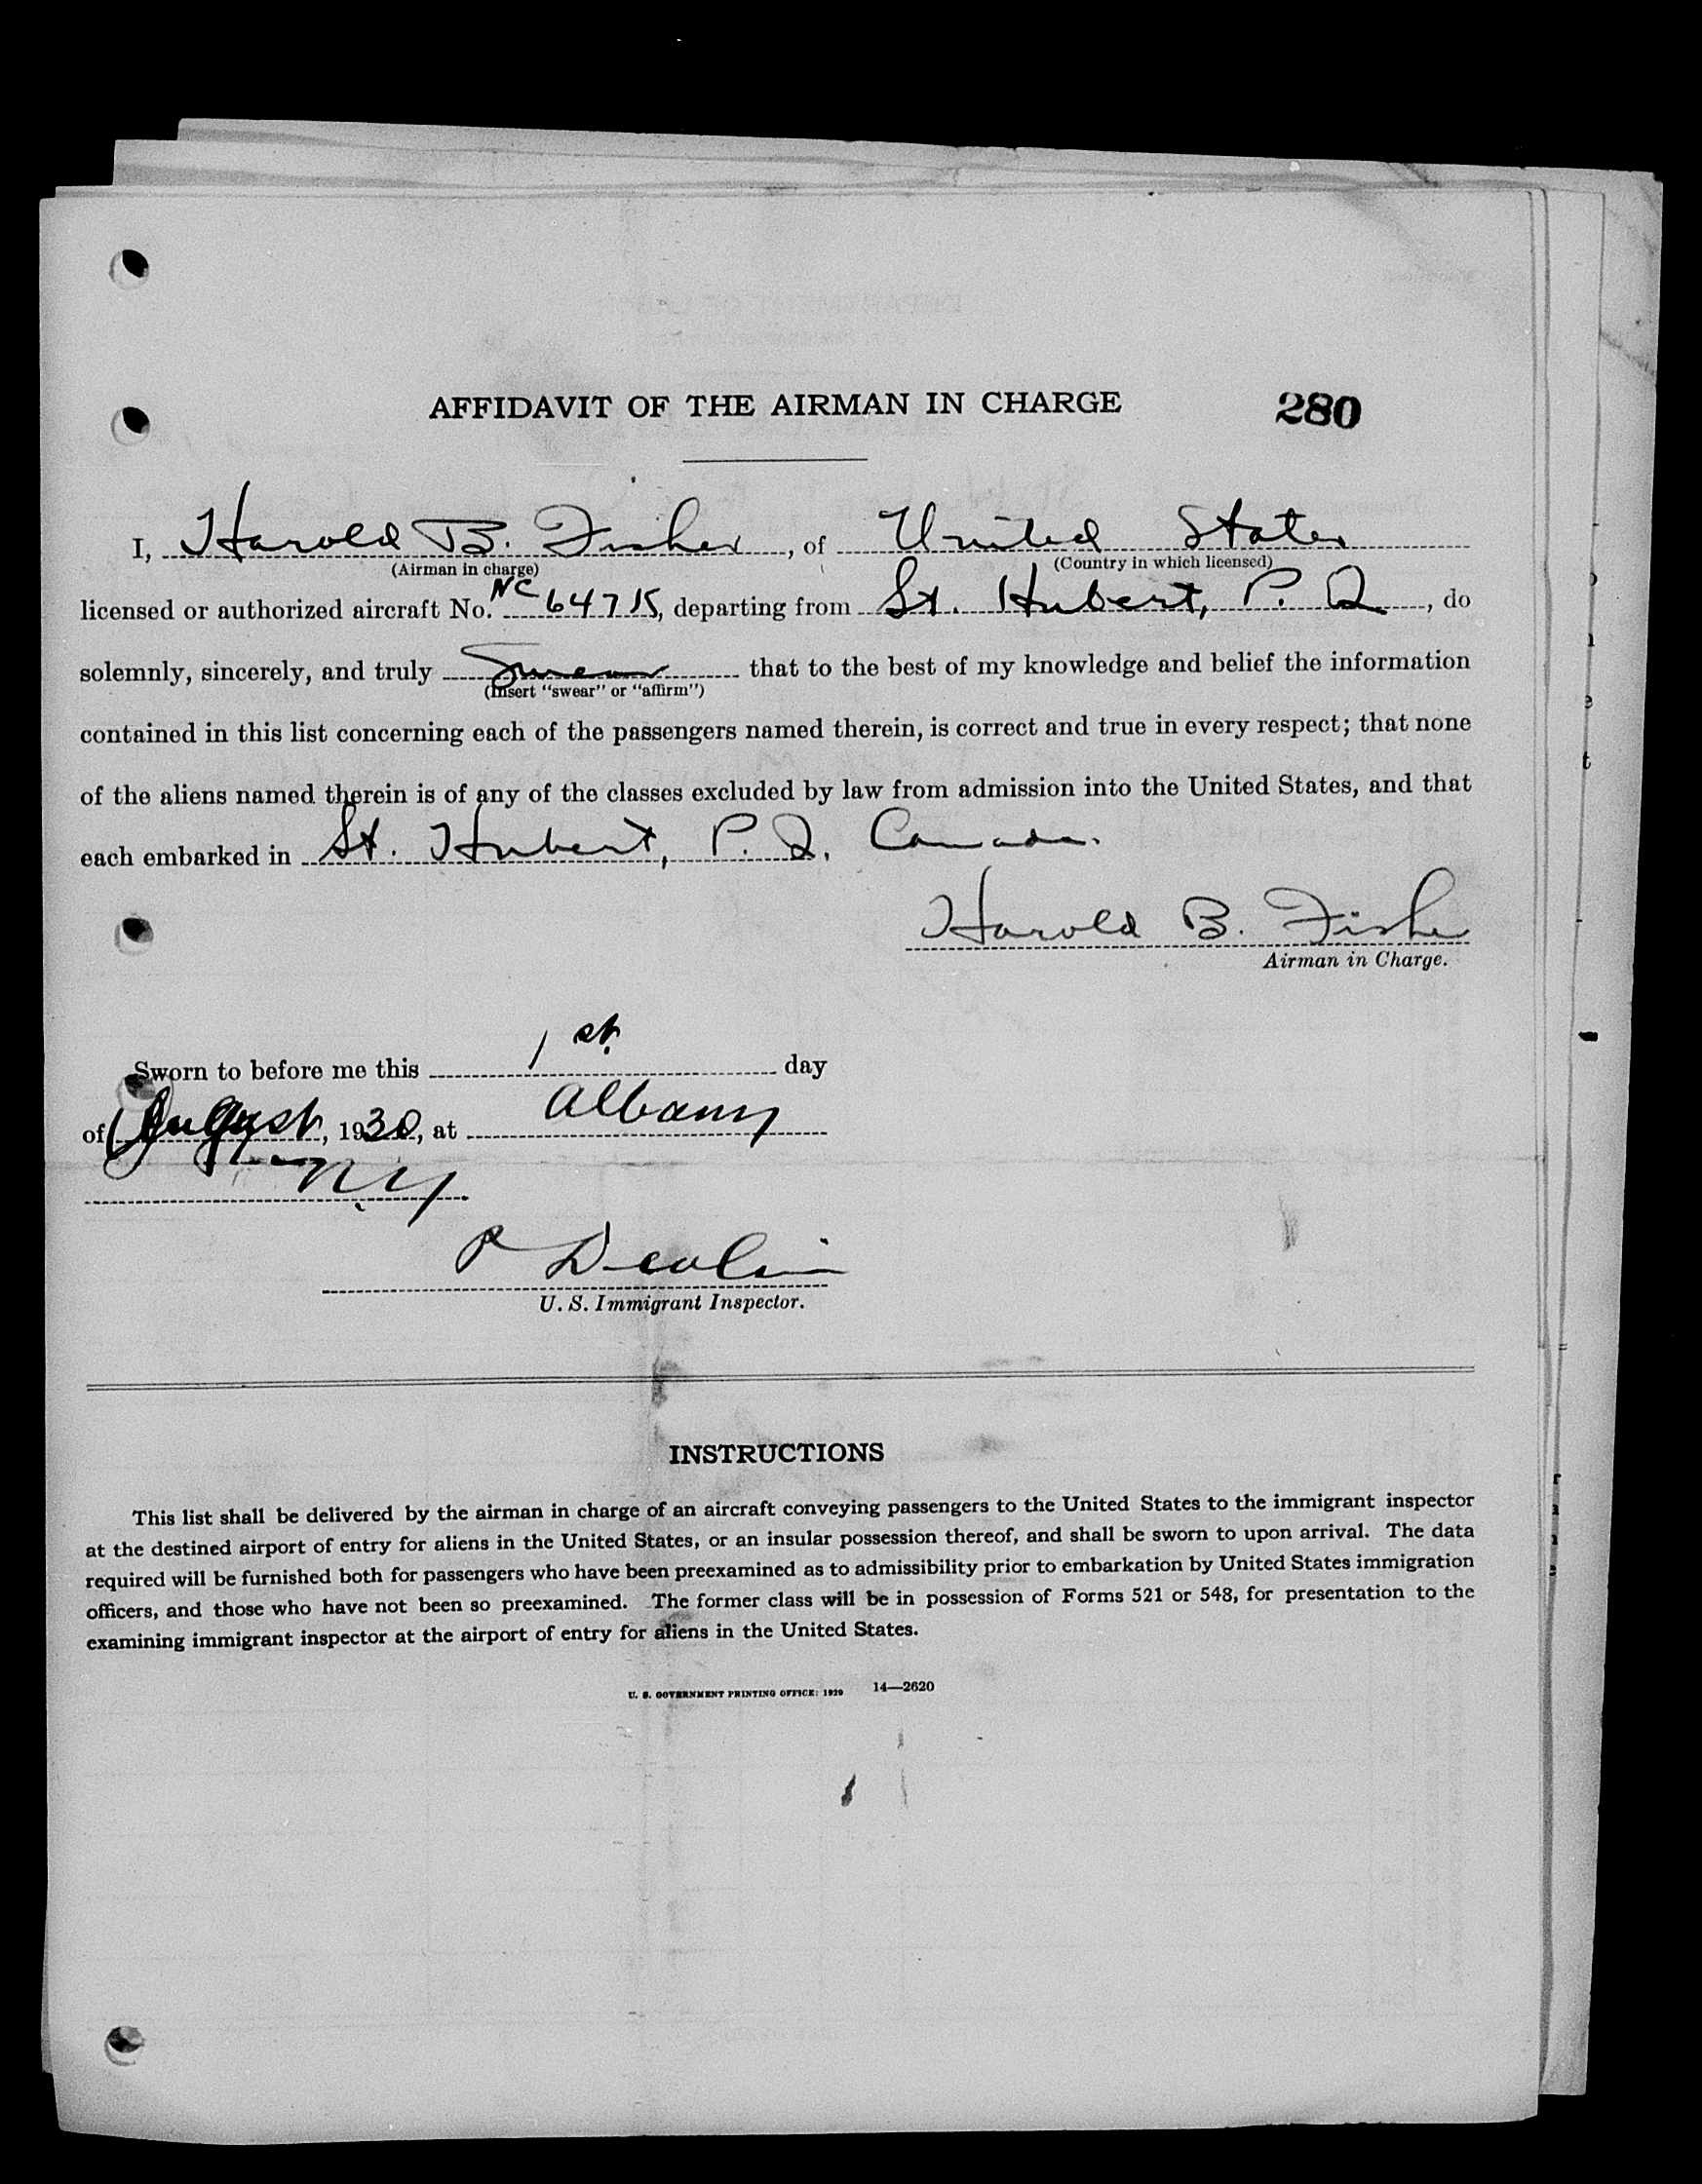 AFFIDAVIT OF THE AIRMAN IN CHARGE 280
I, Harold B. Fisher, of United States
(Airman in charge) (Country in which licensed)
licensed or authorized aircraft No. NC 6471K, departing from St. Hubert, P. Q, do
solemnly, sincerely, and truly Swear that to the best of my knowledge and belief the information
(Insert "swear" or "affirm")
contained in this list concerning each of the passengers named therein, is correct and true in every respect; that none
of the aliens named therein is of any of the classes excluded by law from admission into the United States, and that
each embarked in St. Hubert, P. Q, Canada.
Harold B. Fisher
Airman in Charge.
Sworn to before me this 1st day
of August, 1930, at Albany
N.Y.
P Devlin
U. S. Immigrant Inspector.
INSTRUCTIONS
This list shall be delivered by the airman in charge of an aircraft conveying passengers to the United States to the immigrant inspector
at the destined airport of entry for aliens in the United States, or an insular possession thereof, and shall be sworn to upon arrival. The data
required will be furnished both for passengers who have been preexamined as to admissibility prior to embarkation by United States immigration
officers, and those who have not been so preexamined. The former class will be in possession of Forms 521 or 548, for presentation to the
examining immigrant inspector at the airport of entry for aliens in the United States.
U. S. GOVERNMENT PRINTING OFFICE: 1929 14—2620